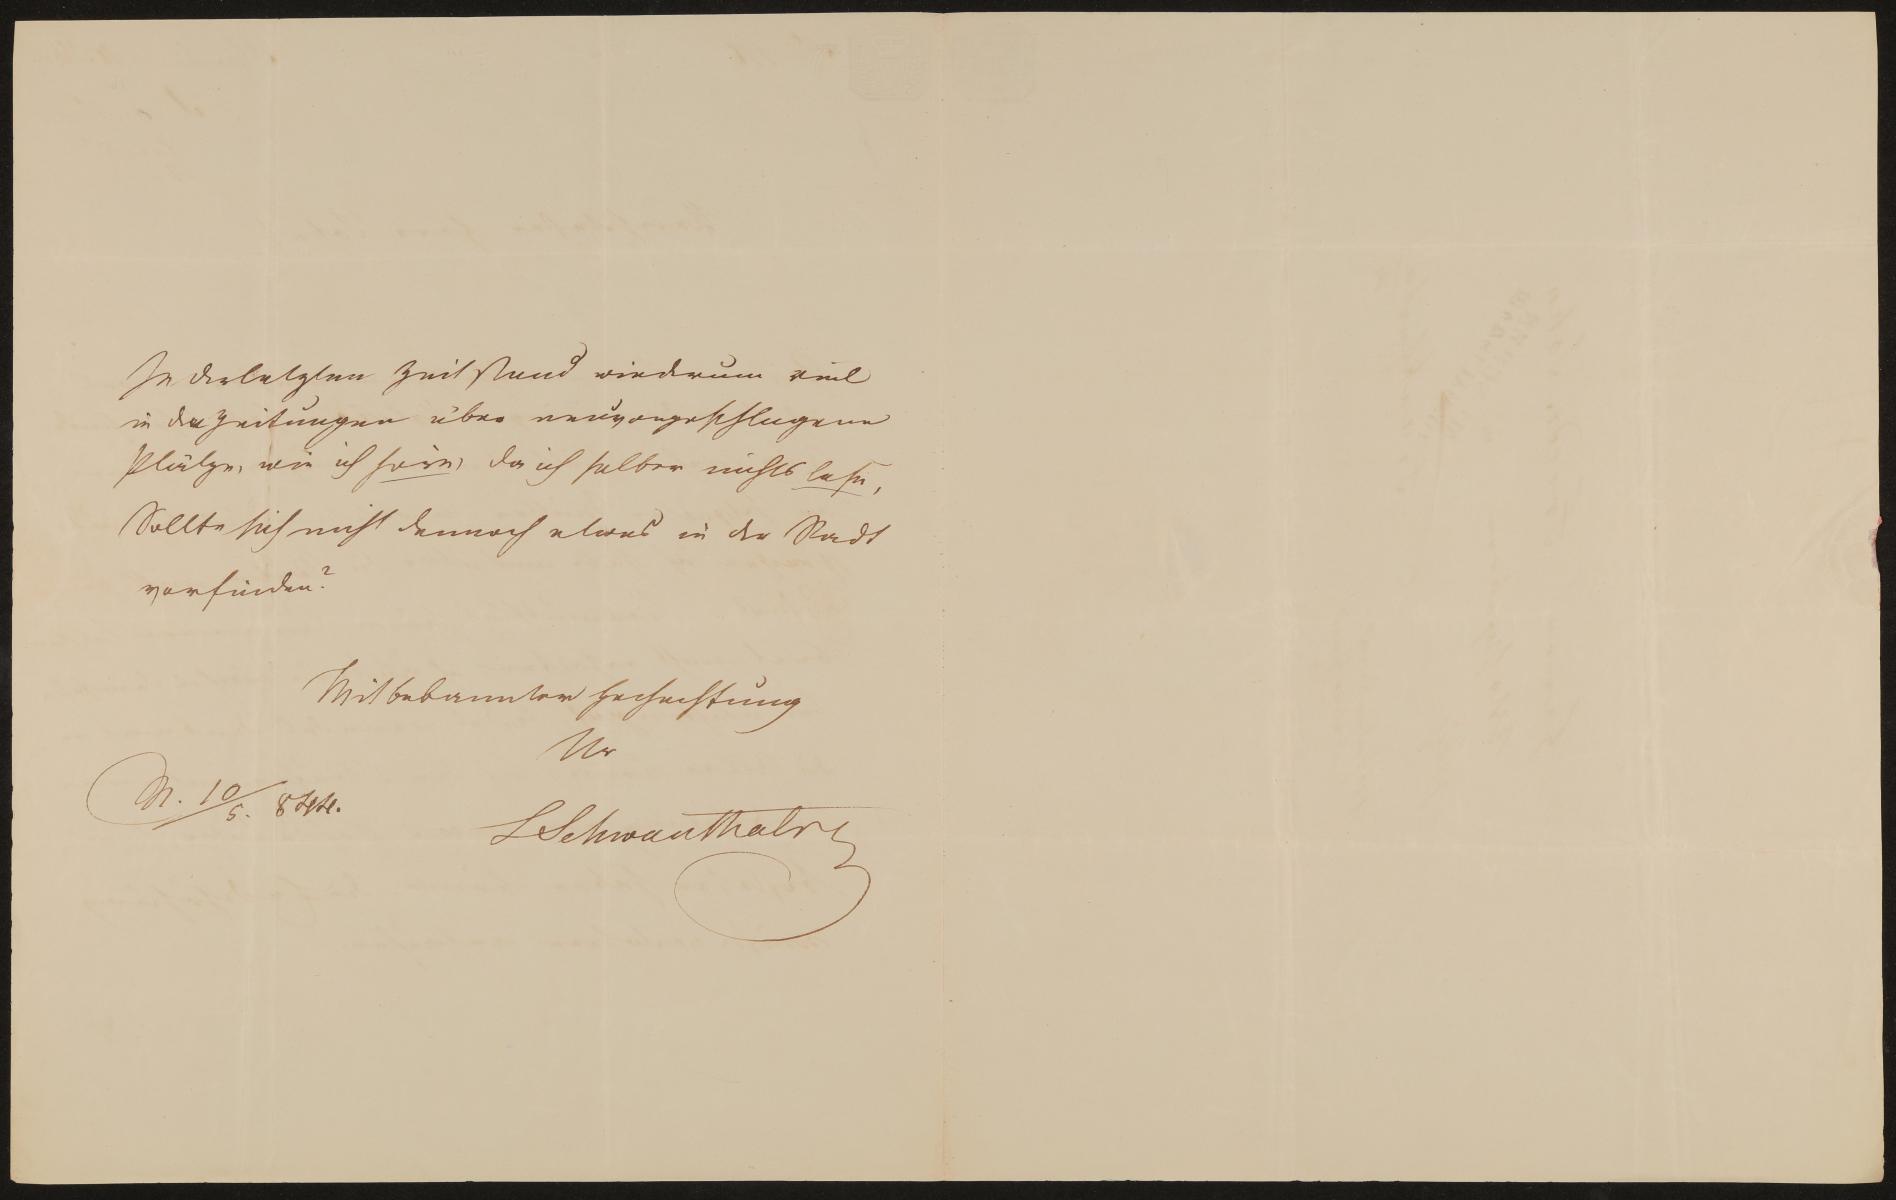 In der letzten Zeit stand wiederum viel
in den Zeitungen über neuvorgeschlagene
Plätze, wie ich höre, da ich selber nichts lese,
Sollte sich nicht dennoch etwas in der Stadt
vorfinden?
Mit bekannter Hochachtung
Ihr
M. 10/5. 844.
LSchwanthaler